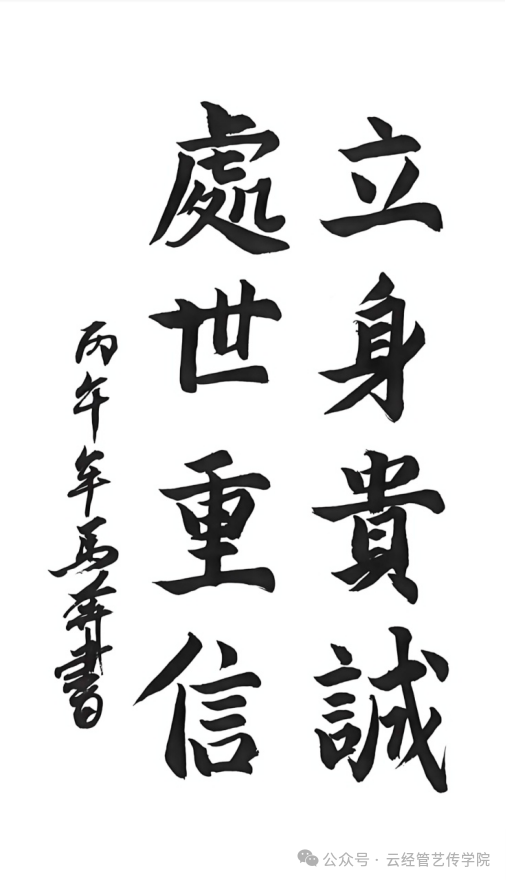 立身貴誠
處世重信
丙午年馬莽書
公众号 · 云经管艺传学院